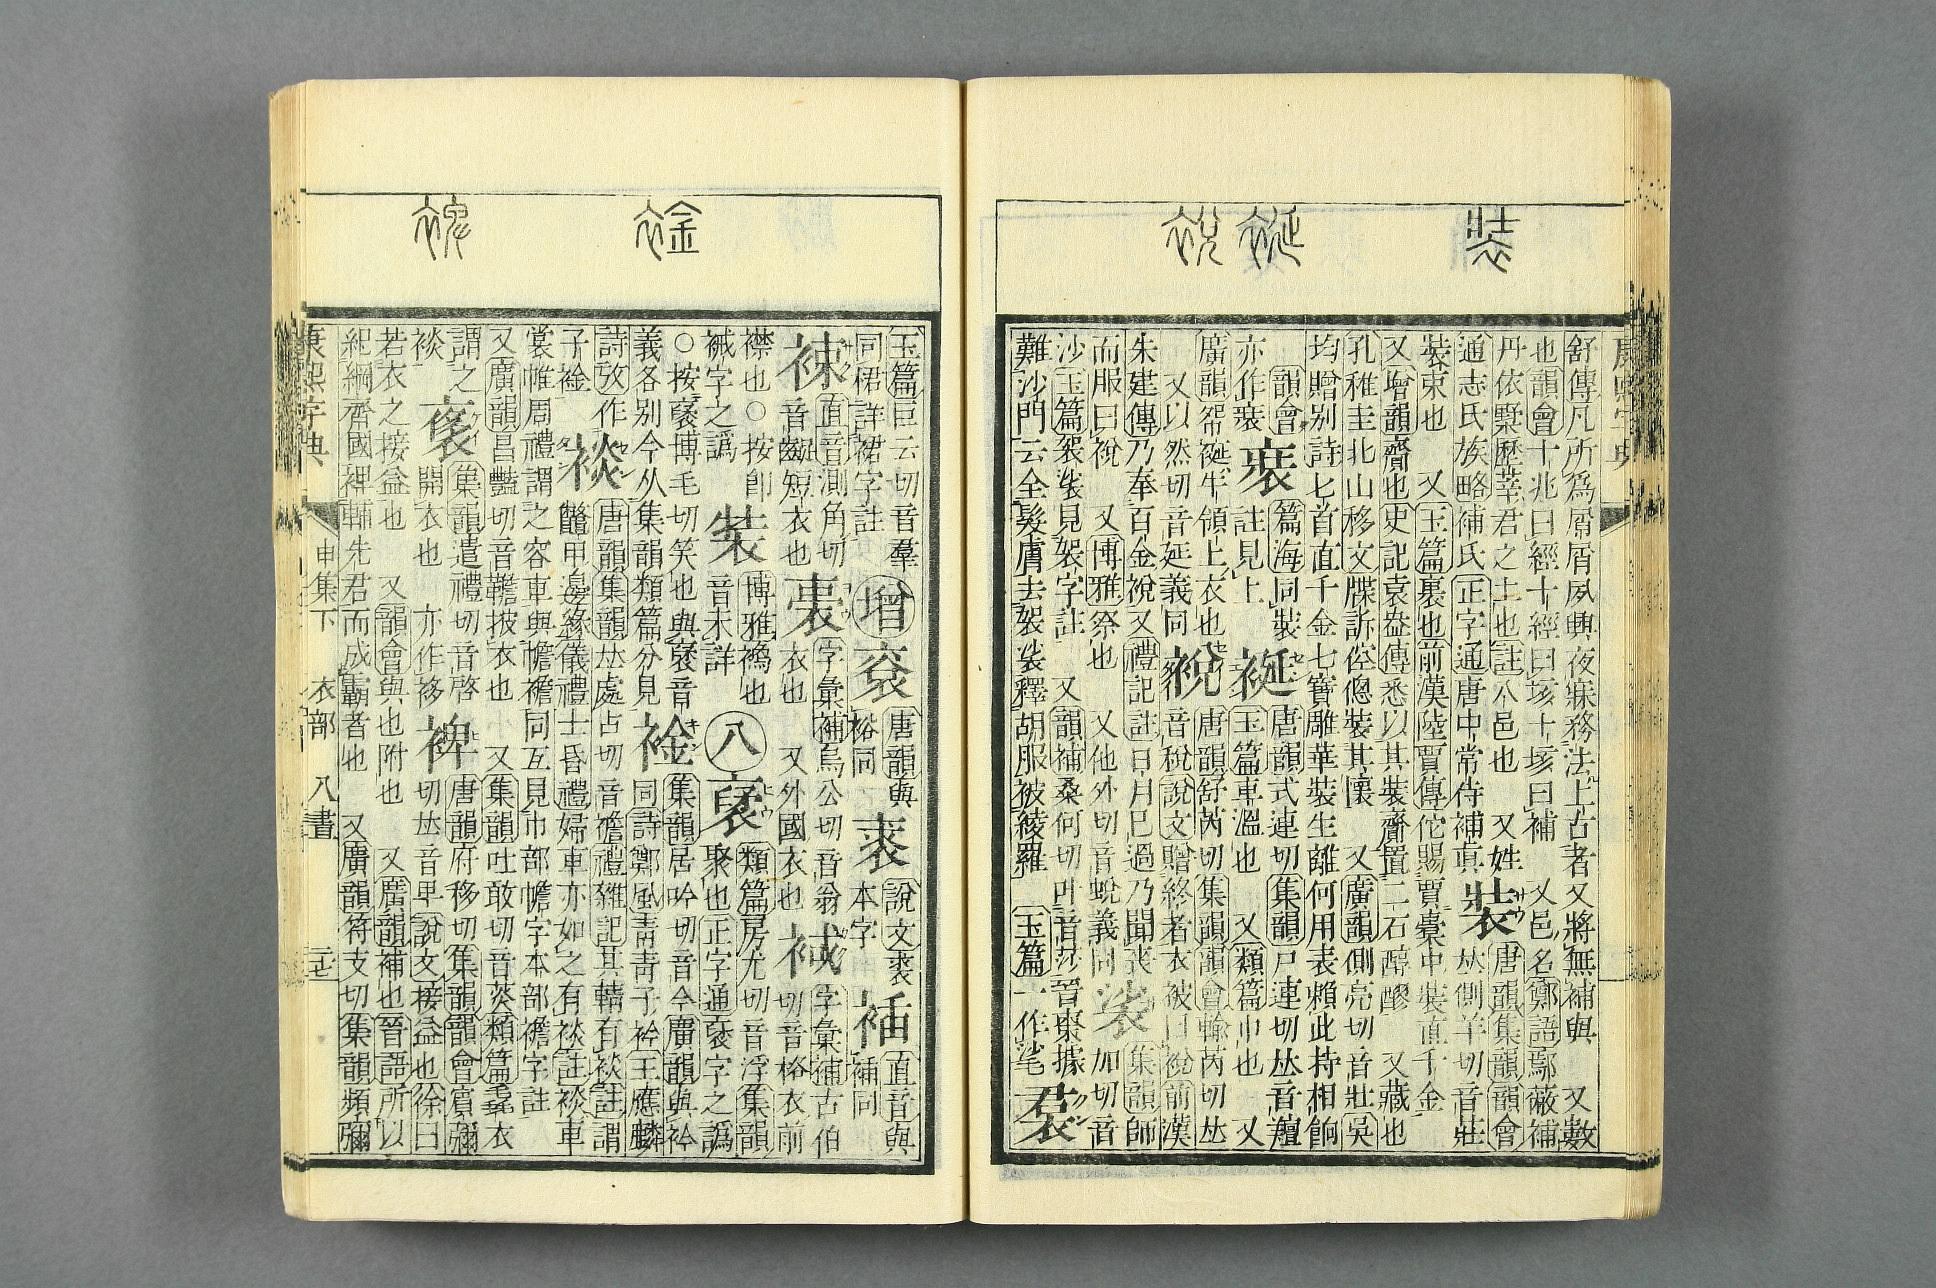 裝 裢 裞
舒傳凡所爲屑屑夙興夜寐務法上古者又將無補與 又數
也韻會十兆曰經十經曰垓十垓曰補 又邑名鄭語鄢蔽補
丹依䵎歷莘君之土也註八邑也 又姓
通志氏族略補氏正字通唐中常侍補眞 裝 唐韻集韻韻會
𠀤側羊切音莊
裝束也 又玉篇裹也前漢陸賈傳佗賜賈橐中裝直千金
又增韻齎也史記袁盎傳悉以其裝齎置二石醇醪 又藏也
孔稚圭北山移文牒訴倥傯裝其懷 又廣韻側亮切音壯吳
均贈別詩匕首直千金七寶雕華裝生離何用表賴此持相餉
韻會
亦作裹 篇海同裝註見上 唐韻式連切集韻尸連切𠀤音羶
玉篇車溫也 又類篇巾也 又
廣韻帤裢牛領上衣也
又以然切音延義同 裞 唐韻舒芮切集韻韻會輸芮切𠀤
音稅說文贈終者衣被曰裞前漢
朱建傳乃奉百金裞又禮記註日月已過乃聞喪
而服曰裞 又博雅祭也 又他外切音蛻義同 裟 集韻師
加切音
沙玉篇袈裟見袈字註 又韻補桑何切叶音莎晉棗據
難沙門云全髮膚去袈裟釋胡服被綾羅 玉篇一作毟 裠
玉篇巨云切音羣
同裙詳裙字註 增 唐韻與
裕同 說文裘
本字 直音與
補同
直音測角切
音齪短衣也 字彙補烏公切音翁
衣也 又外國衣也 裓 字彙補古伯
切音格衣前
襟也○按卽
裓字之譌 裝 博雅襐也
音未詳 八 裒 類篇房尤切音浮集韻
聚也正字通裦字之譌
○按裦博毛切笑也與裒音
義各別今从集韻類篇分見 裣 集韻居吟切音今廣韻與衿
同詩鄭風靑靑子衿王應麟
詩攷作
子裣 裧 唐韻集韻𠀤處占切音襜禮雜記其輤有裧註謂
鼈甲邊緣儀禮士昏禮婦車亦如之有裧註裧車
裳帷周禮謂之容車與幨襜同互見巾部幨字本部襜字註
又廣韻昌豔切音韂披衣也 又集韻吐敢切音菼類篇毳衣
謂之
裧 集韻遣禮切音啓
開衣也 亦作袳 裨 唐韻府移切集韻韻會賓彌
切𠀤音𤰞說文接益也徐曰
若衣之接益也 又韻會與也附也 又廣韻補也晉語所以
紀綱齊國裨輔先君而成霸者也 又廣韻符支切集韻頻彌
康熙字典 申集下 衣部 八畫